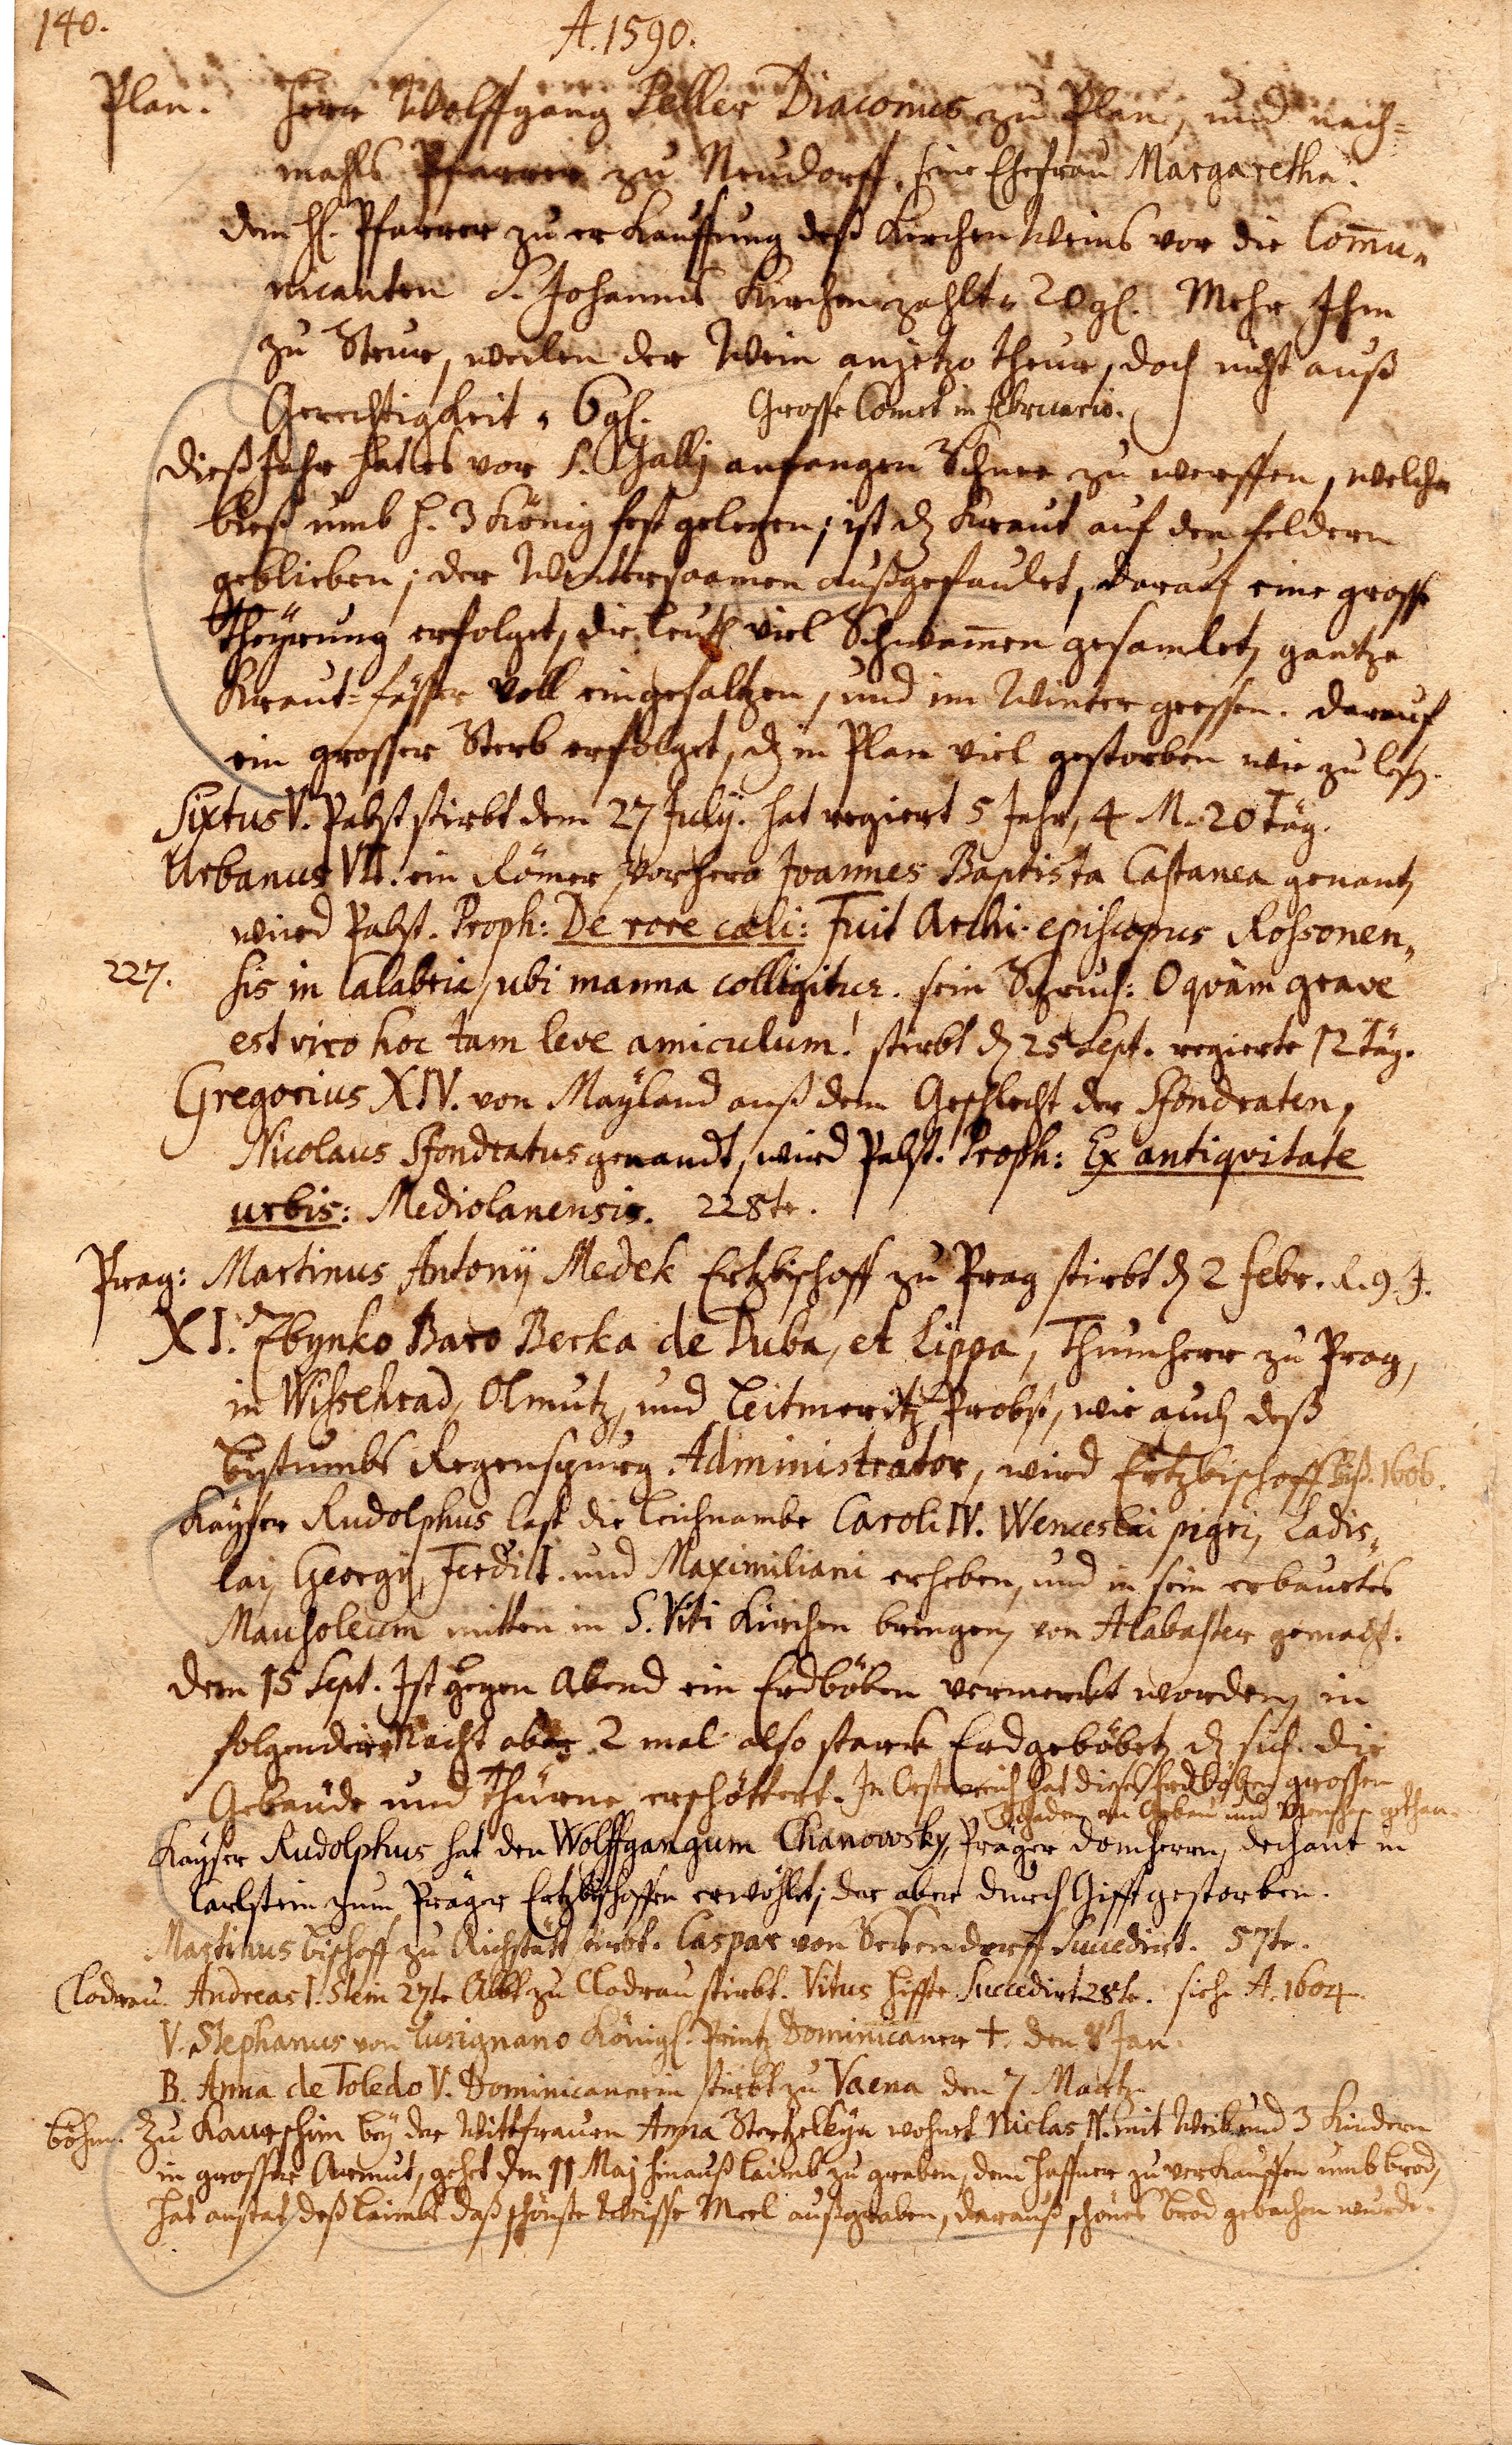 140.
A. 1590.
Plan. Herr Wolffgang Peller Diaconus zu Plan, und nach=
mahls Pfarrer zu Neudorff, seine Ehefrau Margaretha.
dem H. Pfarrer zu erkauffung deß Kirchen Weins vor die Com̄u„
nicanten S. Johannis Kirchen zahlt. 20 gl. Mehr Ihm
zu Steur, weilen der Wein anjetzo theur, doch nicht auß
Gerechtigkeit. 6 gl. Grosse Comet in Februario.
Dieß Jahr hat es vor S. Gallj anfangen Schnee zu werffen, welcher
bieß umb H. 3 König fest gelegen; ist dz Kraut auf den feldern
geblieben; der Wintersaamen außgefaulet, darauf eine grosse
Theÿrung erfolget, die leuth viel Schwam̄en gesamlet, gantze
Kraut=fässer voll eingesaltzen, und im Winter gessen. darauf
ein grosser Sterb erfolget, dz in Plan viel gestorben wie zu lesen.
Sixtus V. Pabst stirbt dem 27 Julÿ. hat regiert 5 Jahr, 4 M. 20 Täg.
Urbanus VII. ein Römer, vorhero Joannes Baptista Castanea genant,
wird Pabst. Proph: De rore cæli: Fuit Archi-episcopus Rossonen„
227. sis in Calabria, ubi manna colligitur. sein Spruch: O quàm grave
est viro hoc tam leve amiculum! stirbt dz 25 Sept. regierte 12 Täg.
Gregorius XIV. von Maÿland auß dem Geschlecht der Sfondraten,
Nicolaus Sfondratus genandt, wird Pabst. Proph: Ex antiqvitate
urbis: Mediolanensis. 228te.
Prag: Martinus Antonÿ Medek Ertzbischoff zu Prag stirbt dz 2 Febr. R. 9. J.
XI. Zbynko Baro Berka de Duba, et Lippa, Thumherr zu Prag,
in Wissehrad, Olmutz, und Leitmeritz Probst, wie auch deß
bistumbs Regenspurg Administrator, wird Ertzbischoff biß 1606.
Kaÿser Rudolphus last die Leichnambe Caroli IV. Wenceslai pigri, Ladis„
lai, Georgÿ, Ferdi I. und Maximiliani erheben, und in sein erbautes
Mausoleum mitten in S. Viti Kirchen bringen, von Alabaster gemacht.
Dem 15 Sept. Ist gegen Abend ein Erdböben vermerckt worden, in
folgender Nacht aber 2 mal also starck Erdgeböbet, dz sich die
Gebaüde und Thürne erschöttert. In Oesterreich hat dieses Erdböben grossen
Schaden an Gebäu und Menschen gethan.
Kaÿser Rudolphus hat den Wolffgangum Chanowsky, Präger domherrn, dechant in
Carlstein zum Präger Ertzbischoffen erwöhlet; der aber durch Gifft gestorben.
Martinus bischoff zu Aichstätt stirbt. Caspar von Seckendorff Succedirt. 57te.
Cladrau. Andreas I. Stein 27te Abbt zu Cladrau stirbt. Vitus Hiffte Succedirt 28te. siehe A. 1604.
V. Stephanus von Lusignano Königl. Printz Dominicaner †. den 8 Jan.
B. Anna de Toledo V. Dominicanerin stirbt zu Vaena den 7 Martz.
böhm. Zu Kaurschim beÿ der Wittfrauen Anna wohnet Niclas N. mit Weib und 3 Kindern
in grosser Armut, gehet den 11 Maj hinauß laimb zu graben, dem haffner zu verkauffen umb brod,
hat anstat deß laimbs daß schönste Weisse Meel außgraben, darauß schönes brod gebachen wurde.